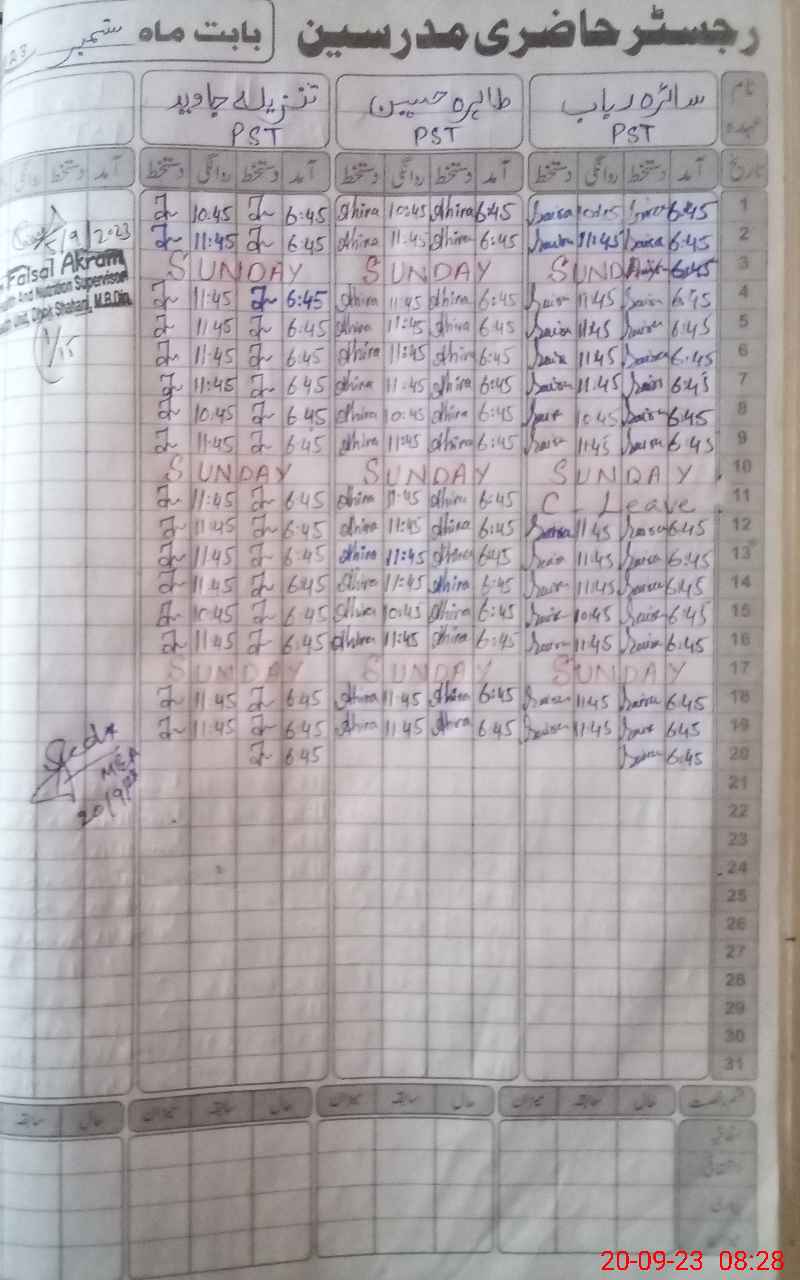 رجسٹر حاضری مدرسین بابت ماہ ستمبر
نام سائرہ رباب طاہرہ حسین تنزیلہ جاوید
عہدہ PST PST PST
تاریخ آمد دستخط روانگی دستخط آمد دستخط روانگی دستخط آمد دستخط روانگی دستخط آمد دستخط روانگی
1 6:45 10:45 Saira 6:45 Ahira 10:45 Ahira 6:45 10:45
2 6:45 Saira 11:45 Saira 6:45 Ahira 11:45 Ahira 6:45 11:45
3 6:45 SUNDAY SUNDAY SUNDAY
4 6:45 Saira 11:45 Saira 6:45 Ahira 11:45 Ahira 6:45 11:45
5 6:45 Saira 11:45 Saira 6:45 Ahira 11:45 Ahira 6:45 11:45
6 6:45 Saira 11:45 Saira 6:45 Ahira 11:45 Ahira 6:45 11:45
7 6:45 Saira 11:45 Saira 6:45 Ahira 11:45 Ahira 6:45 11:45
8 6:45 Saira 10:45 Saira 6:45 Ahira 10:45 Ahira 6:45 10:45
9 6:45 Saira 11:45 Saira 6:45 Ahira 11:45 Ahira 6:45 11:45
10 SUNDAY SUNDAY SUNDAY
11 C - Leave 6:45 Ahira 11:45 Ahira 6:45 11:45
12 6:45 Saira 11:45 Saira 6:45 Ahira 11:45 Ahira 6:45 11:45
13 6:45 Saira 11:45 Saira 6:45 Ahira 11:45 Ahira 6:45 11:45
14 6:45 Saira 11:45 Saira 6:45 Ahira 11:45 Ahira 6:45 11:45
15 6:45 Saira 10:45 Saira 6:45 Ahira 10:45 Ahira 6:45 10:45
16 6:45 Saira 11:45 Saira 6:45 Ahira 11:45 Ahira 6:45 11:45
17 SUNDAY SUNDAY SUNDAY
18 6:45 Saira 11:45 Saira 6:45 Ahira 11:45 Ahira 6:45 11:45
19 6:45 Saira 11:45 Saira 6:45 Ahira 11:45 Ahira 6:45 11:45
20 6:45 Saira 6:45
21
22
23
24
25
26
27
28
29
30
31
/9/2023
Faisal Akram
And Nutrition Supervisor
Shahani, M.B.Din
MEA
20/9/23
حال سابقہ میزان حال سابقہ میزان حال سابقہ میزان حال سابقہ
20-09-23 08:28